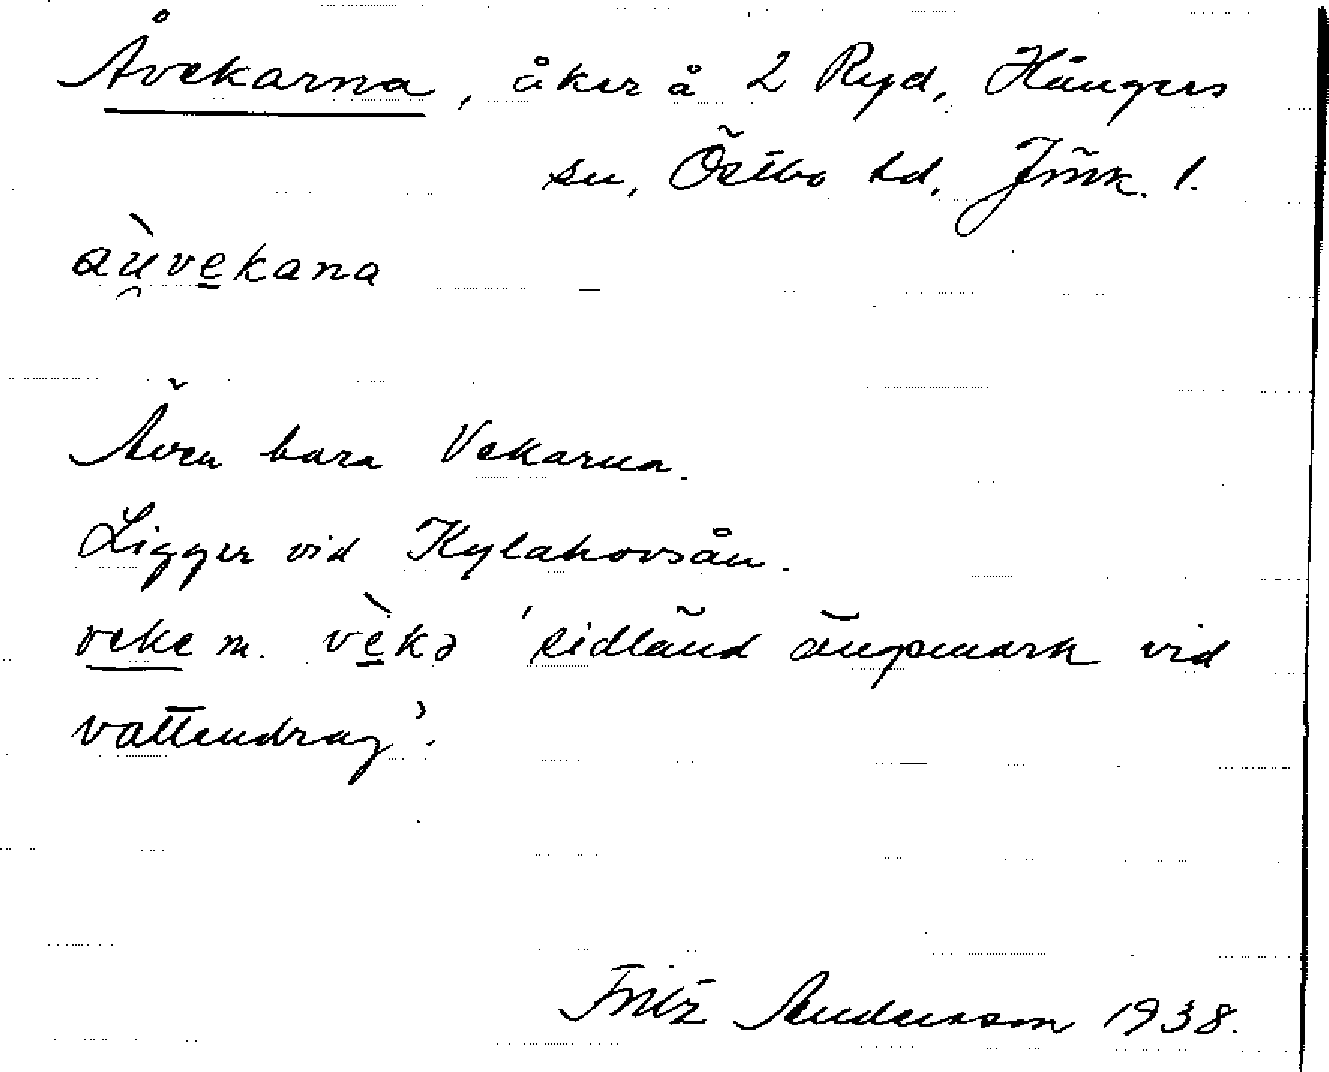 Åvekarna, åker å 2 Ryd, Hångers
sn, Östbo hd, Jönk. l.
aù̯vekana
Även bara Vekarna.
Ligger vid Kylahovsån.
veke m. vèkə 'sidländ ängsmark vid
vattendrag'.
Fritz Andersson 1938.